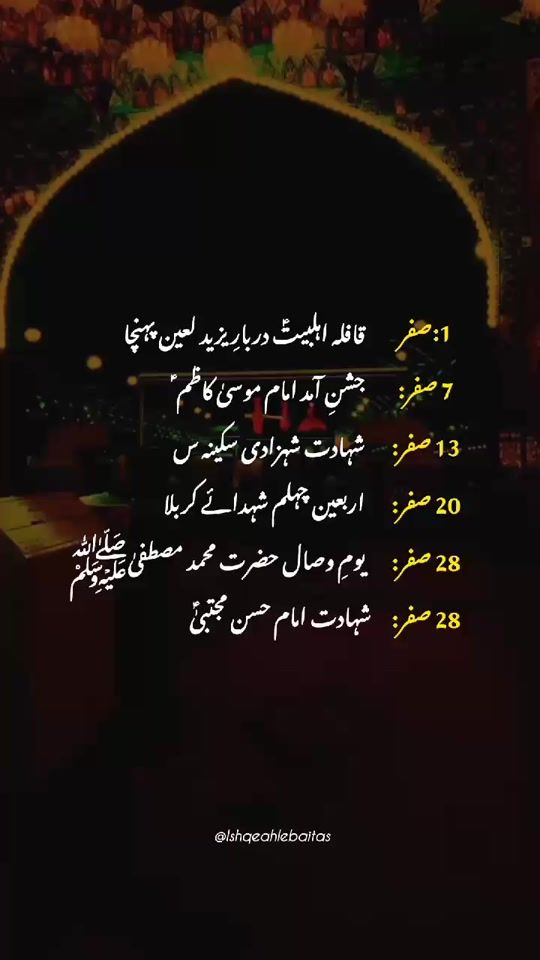 1:صفر قافلہ اہلبیتؑ دربارِ یزید لعین پہنچا
7 صفر: جشنِ آمد امام موسیٰ کاظمؑ
13 صفر: شہادت شہزادی سکینہ س
20 صفر: اربعین چہلم شہدائے کربلا
28 صفر: یومِ وصال حضرت محمد مصطفیٰ ﷺ
28 صفر: شہادت امام حسن مجتبیٰؑ
@Ishqeahlebaitas